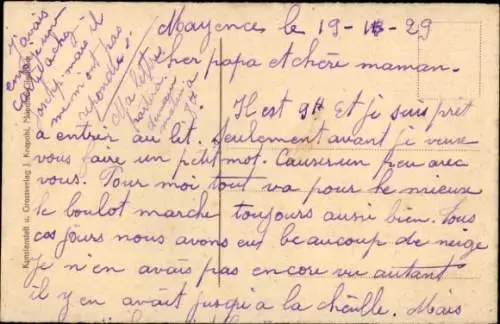 Mayence le 19-1-29
Cher papa et chère maman.
Il est 9H Et je suis prêt
a entrer au lit. Seulement avant je veux
vous faire un ptit mot. Causer un peu avec
vous. Pour moi tout va pour le mieux
le boulot marche toujours aussi bien. Tous
ces jours nous avons eu beaucoup de neige
Je n'en avais pas encore vu autant
il y en avait jusqu'a la chéille. Mais
J'avais
mais il
m'ont pas
répondu.
Ma lettre
partira
demain
matin
Kunstanstalt u. Grossverlag J.